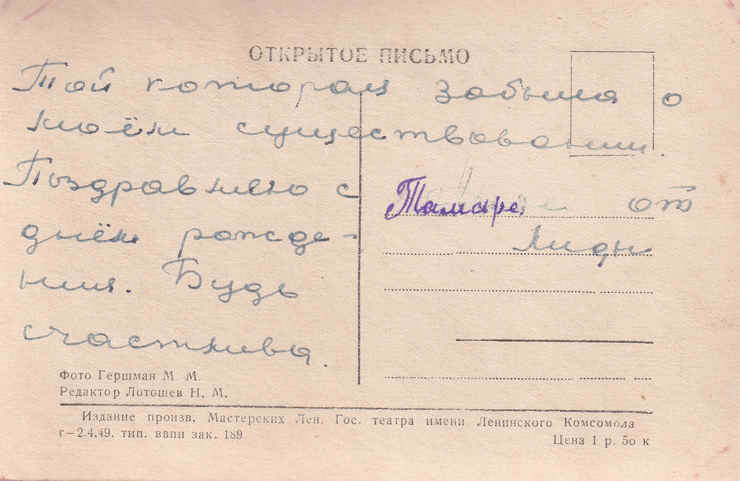 ОТКРЫТОЕ ПИСЬМО
Той которая забыла о
моём существовании.
Поздравляю с
днём рожде-
ния. Будь
счастлива.
Тамаре от
Лиды
Фото Гершман М. М.
Редактор Лотошев Н. М.
Издание произв. Мастерских Лен. Гос. театра имени Ленинского Комсомола
г—2.4.49. тип. ввпи зак. 189
Цена 1 р. 50 к